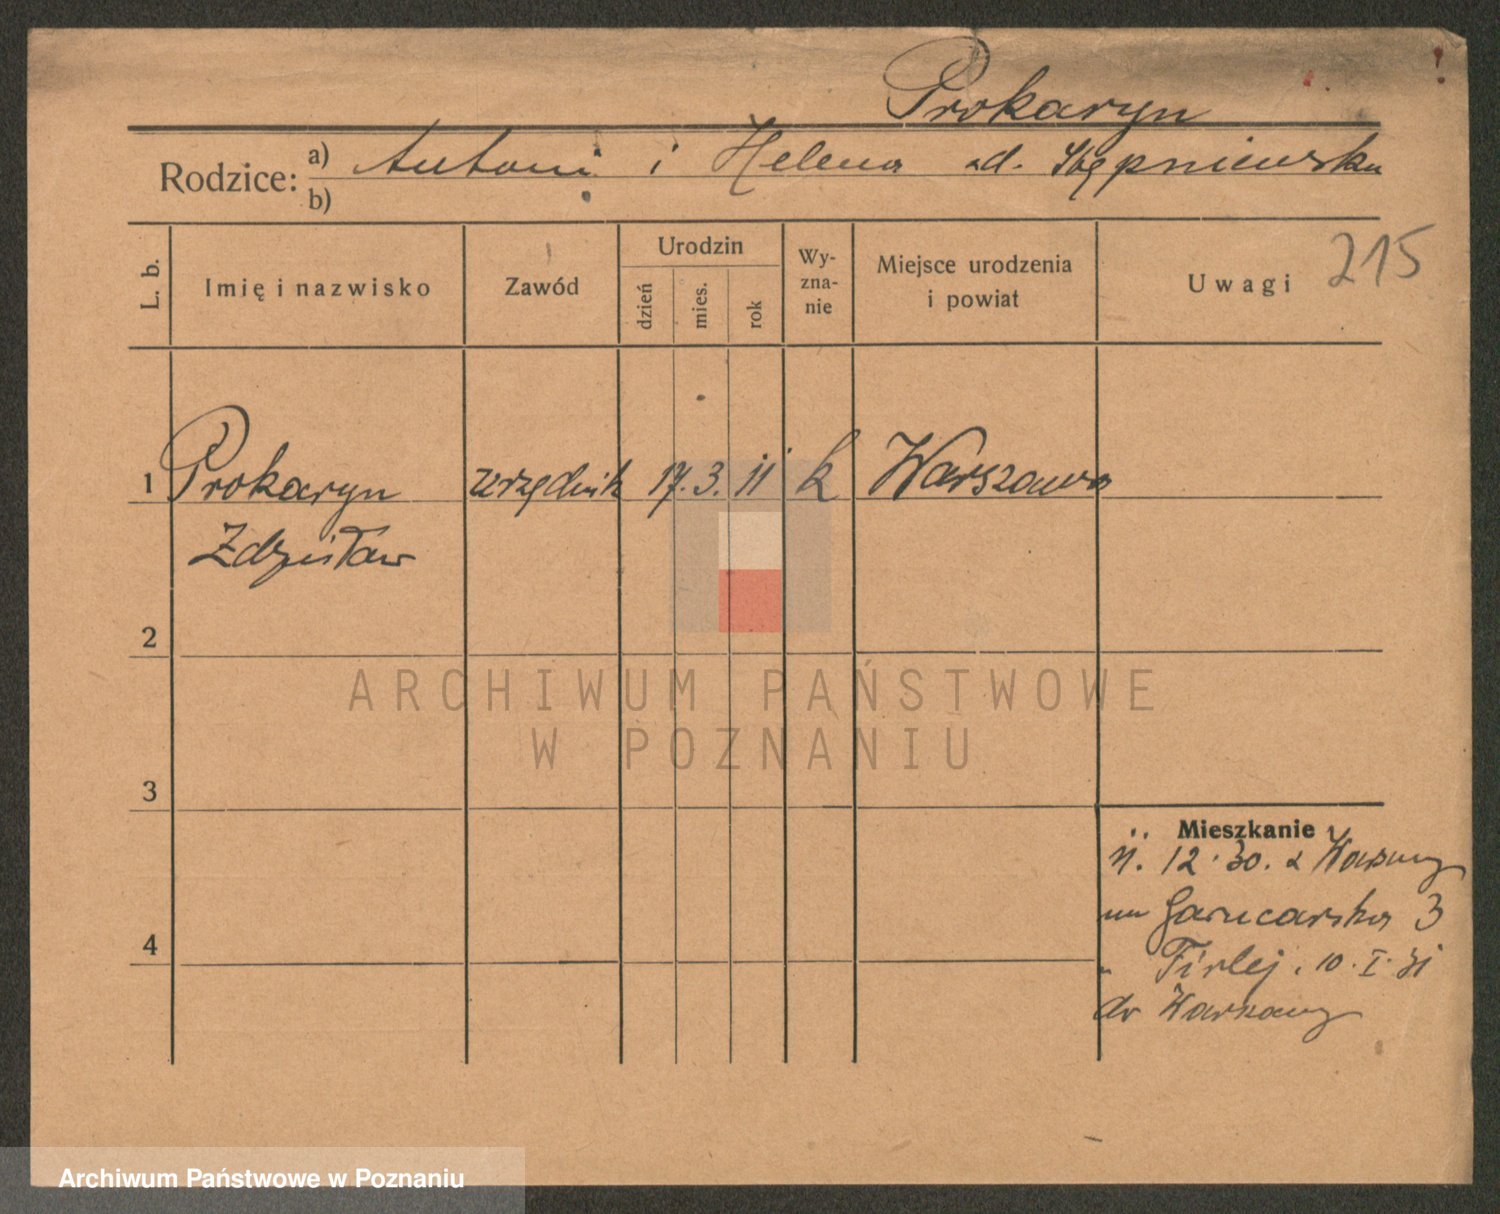 Prokaryn
Rodzice: a) Antoni i Helena zd. Stępniewska
b)
L. b.
Imię i nazwisko
Zawód
Urodzin
dzień
mies.
rok
Wy-
zna-
nie
Miejsce urodzenia
i powiat
Uwagi
215
1 Prokaryn urzędnik 17. 3. 11 k Warszawa
Zdzisław
2
ARCHIWUM PAŃSTWOWE
W POZNANIU
3
Mieszkanie
12. 30. z Warszawy
Garncarska 3
4
" Firlej. 10. I. 31
do Warszawy
Archiwum Państwowe w Poznaniu